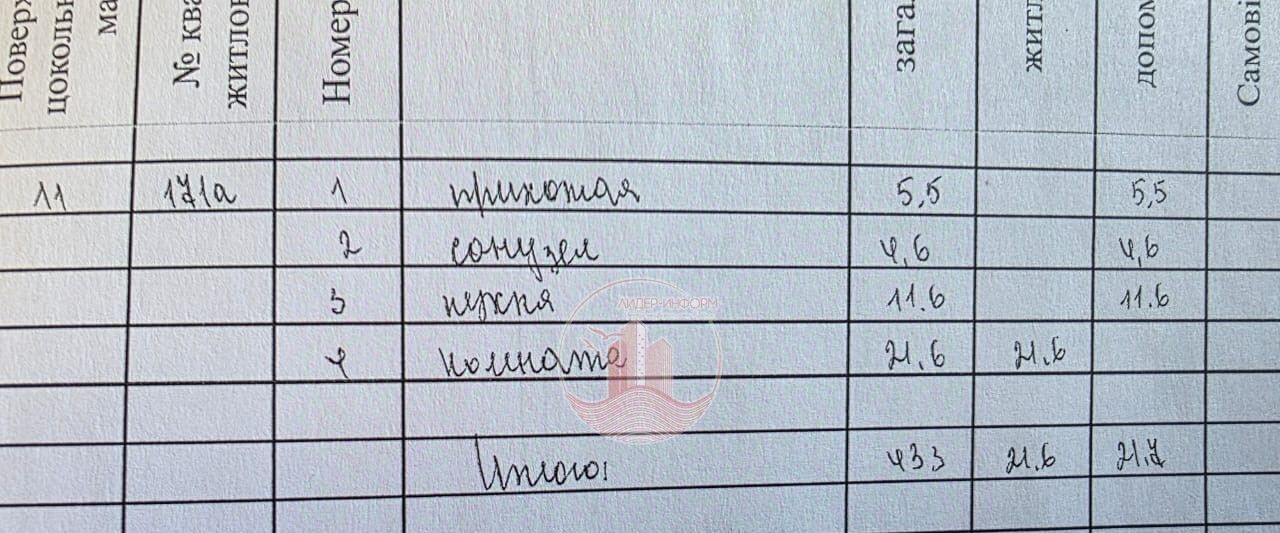 Поверх
цокольн
ма
№ ква
житлов
Номер
зага
житл
допом
Самові
11 171а 1 прихожая 5,5 5,5
2 санузел 4,6 4,6
3 кухня 11.6 11.6
ЛИДЕР-ИНФОРМ
4 комната 21.6 21.6
Итого: 433 21.6 21.7